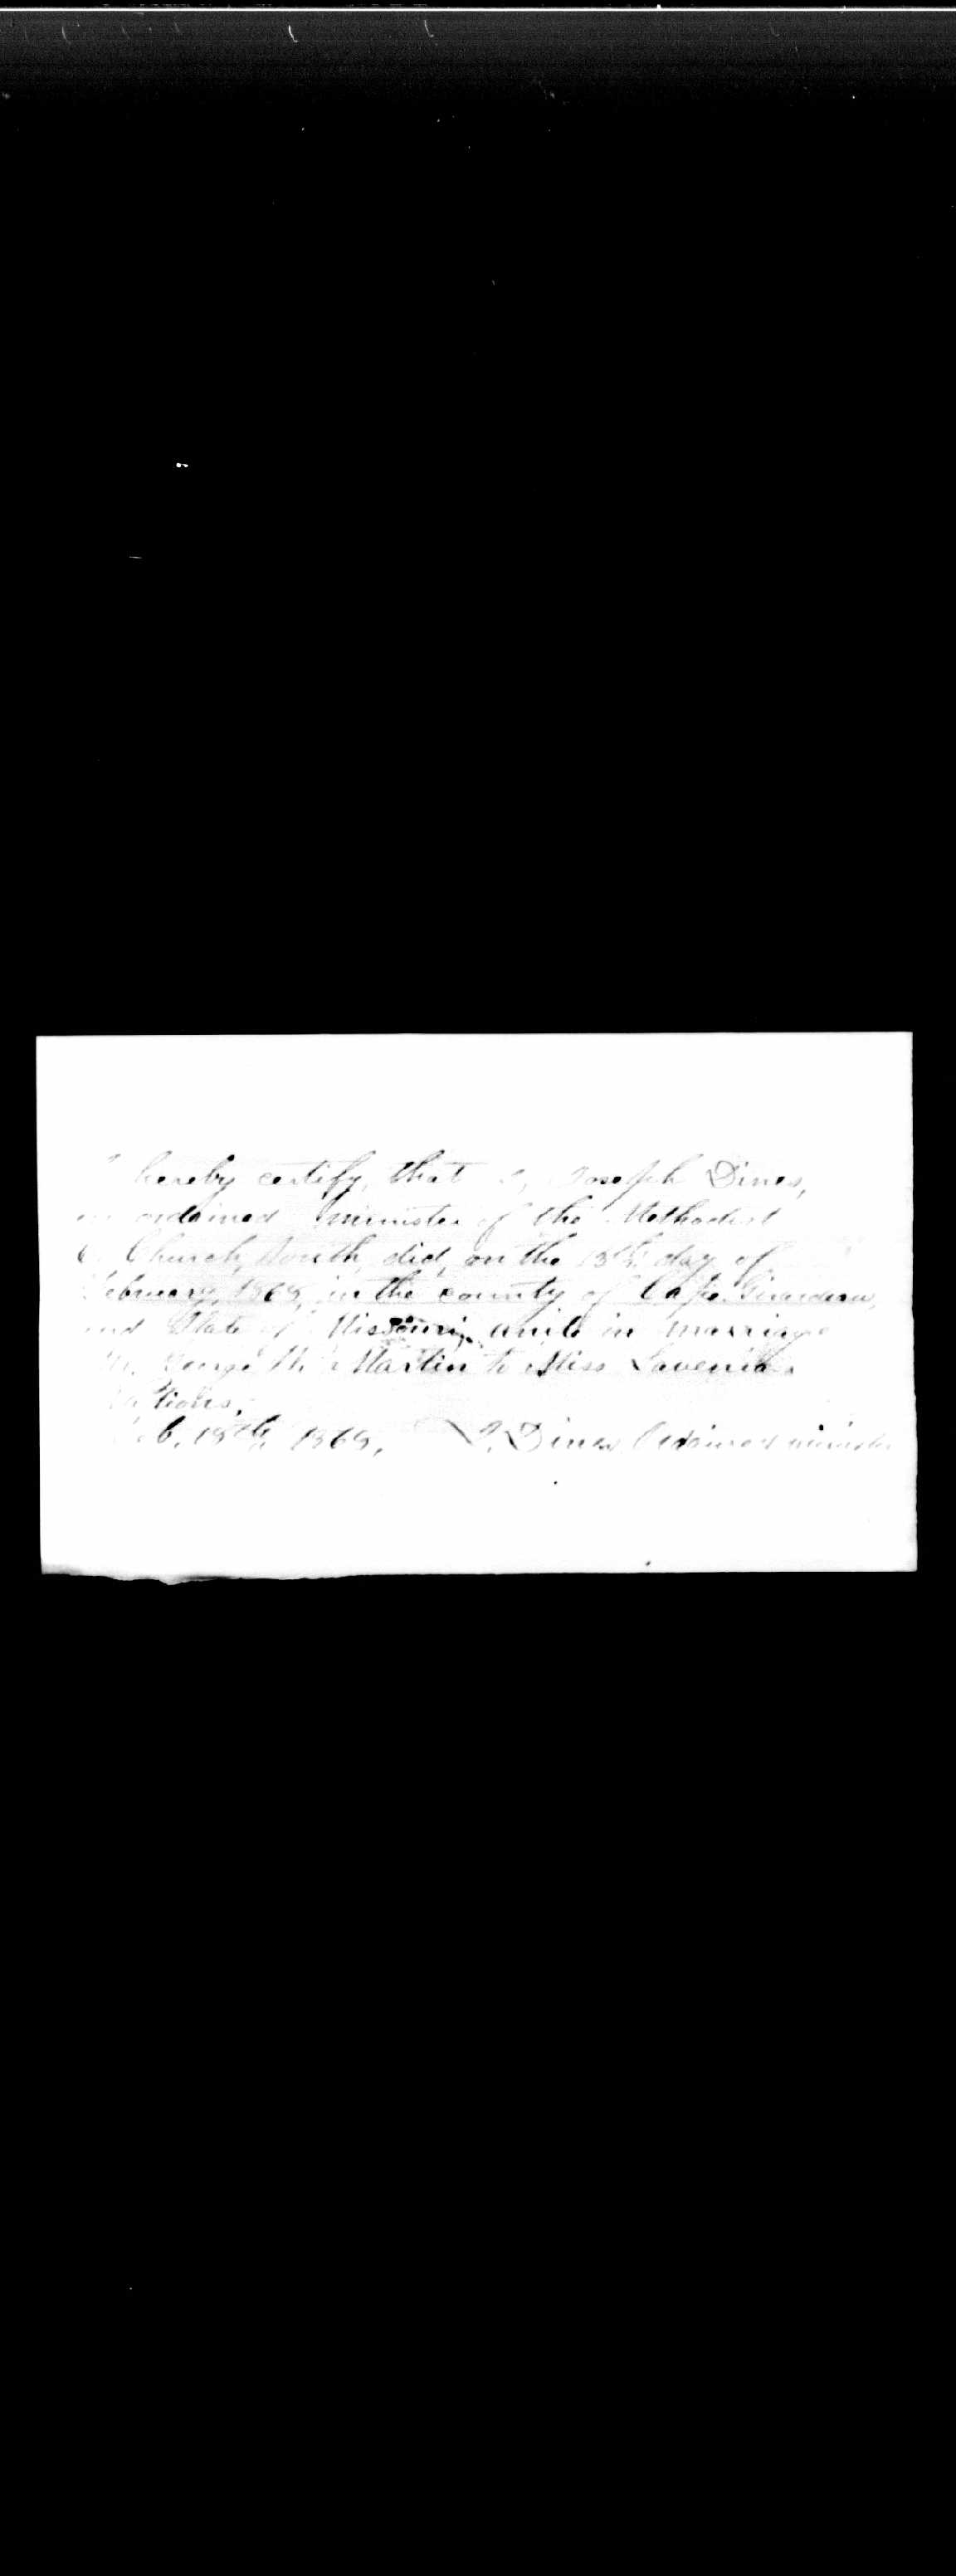 I hereby certify, that I, Joseph Dines,
an ordained minister of the Methodist
E. Church, South, did, on the 13th day of
February, 1868, in the county of Cape Girardeau,
and State of Missouri, unite in marriage
Mr. George W. Martin to Miss Lavenia

Feb. 18th, 1868, J. Dines Ordained minister